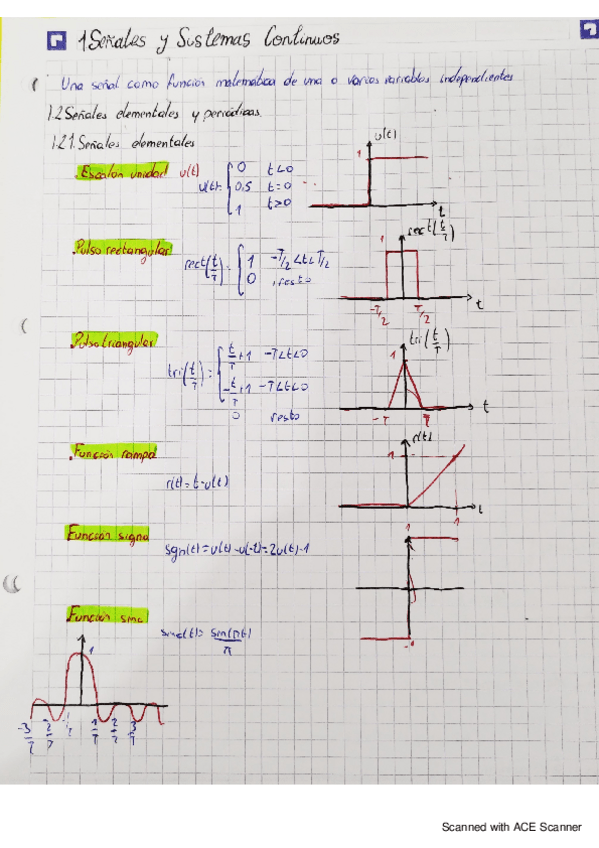 1 Señales y Sistemas Continuos
Una señal como función matemática de una o varias variables independientes
1.2 Señales elementales y periódicas.
1.2.1. Señales elementales
Escalón unidad u(t)
u(t)= { 0 t<0
0.5 t=0
1 t>0
u(t)
1
t
Pulso rectangular
rect(t/T) = { 1 -T/2<t<T/2
0 , resto
rect(t/T)
1
-T/2 T/2 t
Pulso triangular
tri(t/T) = { t/T+1 -T<t<0
-t/T+1 -T<t<0
0 resto
tri(t/T)
1
-T T t
Función rampa
r(t)=t·u(t)
r(t)
1
1 t
Función signo
sgn(t)=u(t)-u(-t)=2u(t)-1
1
-1
Función sinc
sinc(t)= sin(πt)/π
1
Scanned with ACE Scanner